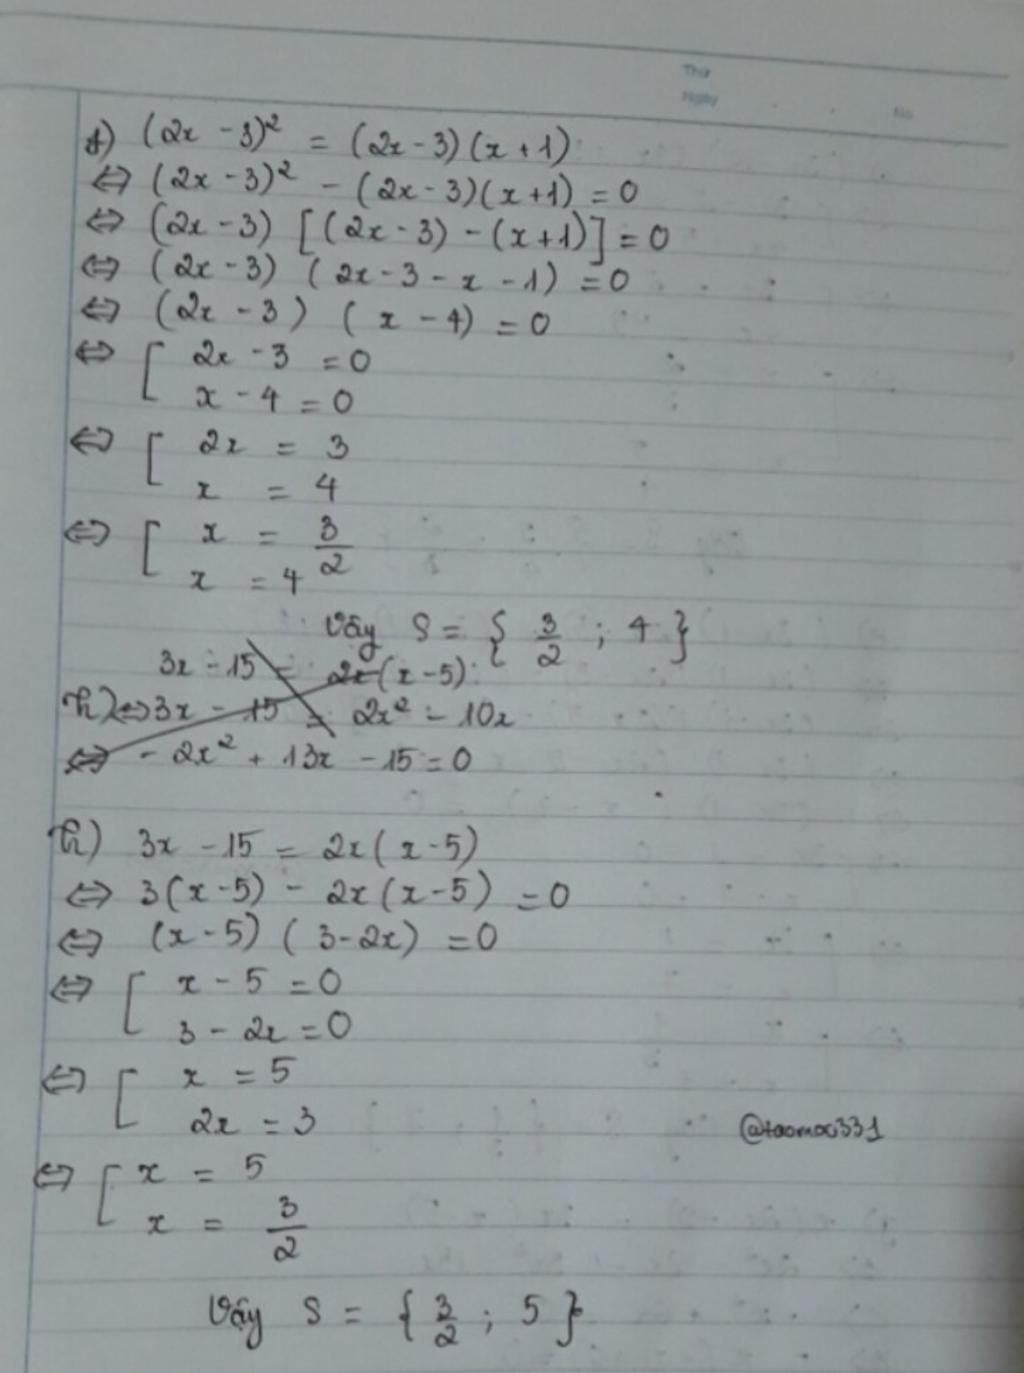 Thứ
Ngày
No
f) (2x - 3)² = (2x - 3)(x + 1)
⇔ (2x - 3)² - (2x - 3)(x+1) = 0
⇔ (2x - 3) [(2x - 3) - (x+1)] = 0
⇔ (2x - 3) (2x - 3 - x - 1) = 0
⇔ (2x - 3) (x - 4) = 0
⇔ [ 2x - 3 = 0
x - 4 = 0
⇔ [ 2x = 3
x = 4
⇔ [ x = 3/2
x = 4
Vậy S = { 3/2 ; 4 }
3x - 15 = 2x(x - 5)
h) ⇔ 3x - 15 = 2x² - 10x
⇔ - 2x² + 13x - 15 = 0
h) 3x - 15 = 2x(x - 5)
⇔ 3(x - 5) - 2x(x - 5) = 0
⇔ (x - 5) (3 - 2x) = 0
⇔ [ x - 5 = 0
3 - 2x = 0
⇔ [ x = 5
2x = 3
@taomoi331
⇔ [ x = 5
x = 3/2
Vậy S = { 3/2 ; 5 }